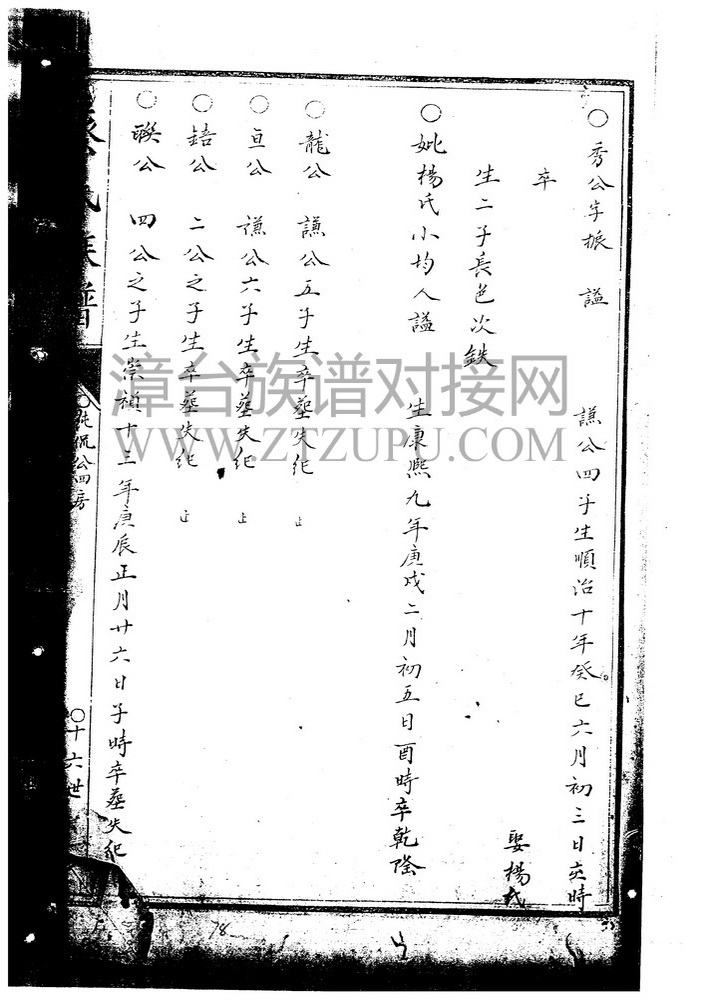 ○秀公字振 謚 謙公四子生順治十年癸巳六月初三日亥時
卒 娶楊氏
生二子長色次鉄
○妣楊氏小均人謚 生康熙九年庚戌二月初五日酉時卒乾隆
○龍公 謙公五子生卒塟失紀 止
○亘公 謙公六子生卒塟失紀 止
○錇公 二公之子生卒塟失紀 止
○聯公 四公之子生崇禎十三年庚辰正月廿六日子時卒塟失紀
氏族譜
○純侃公四房
○十六世
78
漳台族谱对接网
WWW.ZTZUPU.COM